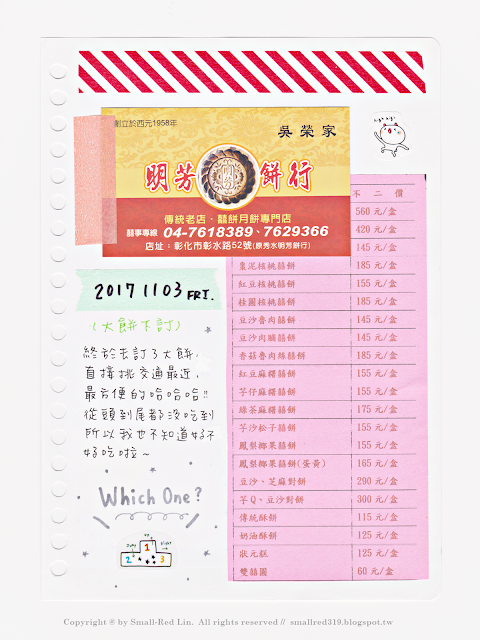 創立於西元1958年
吳榮家
明芳餅行
傳統老店‧囍餅月餅專門店
囍事專線 04-7618389、7629366
店址：彰化市彰水路52號(原秀水明芳餅行)
不二價
560 元/盒
420 元/盒
145 元/盒
棗泥核桃囍餅 185 元/盒
紅豆核桃囍餅 155 元/盒
桂圓核桃囍餅 185 元/盒
豆沙魯肉囍餅 145 元/盒
豆沙肉脯囍餅 145 元/盒
香菇魯肉綠囍餅 185 元/盒
紅豆麻糬囍餅 155 元/盒
芋仔麻糬囍餅 155 元/盒
綠茶麻糬囍餅 175 元/盒
芋沙松子囍餅 155 元/盒
鳳梨椰果囍餅 155 元/盒
鳳梨椰果囍餅(蛋黃) 165 元/盒
豆沙、芝麻對餅 290 元/盒
芋Q、豆沙對餅 300 元/盒
傳統酥餅 115 元/盒
奶油酥餅 125 元/盒
狀元糕 125 元/盒
雙囍圓 60 元/盒
2017 11 03 FRI.
(大餅下訂)
終於去訂了大餅,
直接挑交通最近,
最方便的哈哈哈!!
從頭到尾都沒吃到
所以我也不知道好不
好吃啦~
Which One?
1
2 3
Copyright ® by Small-Red Lin. All rights reserved // smallred319.blogspot.tw